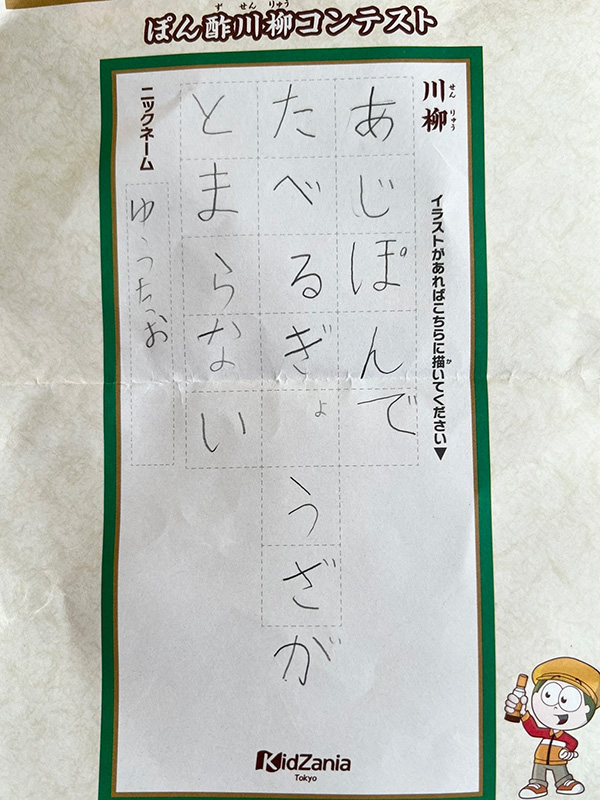 ぽん酢川柳コンテスト
川柳
イラストがあればこちらに描いてください▼
あじぽんで
たべるぎょうざが
とまらない
ニックネーム
ゆうちっお
KidZania
Tokyo